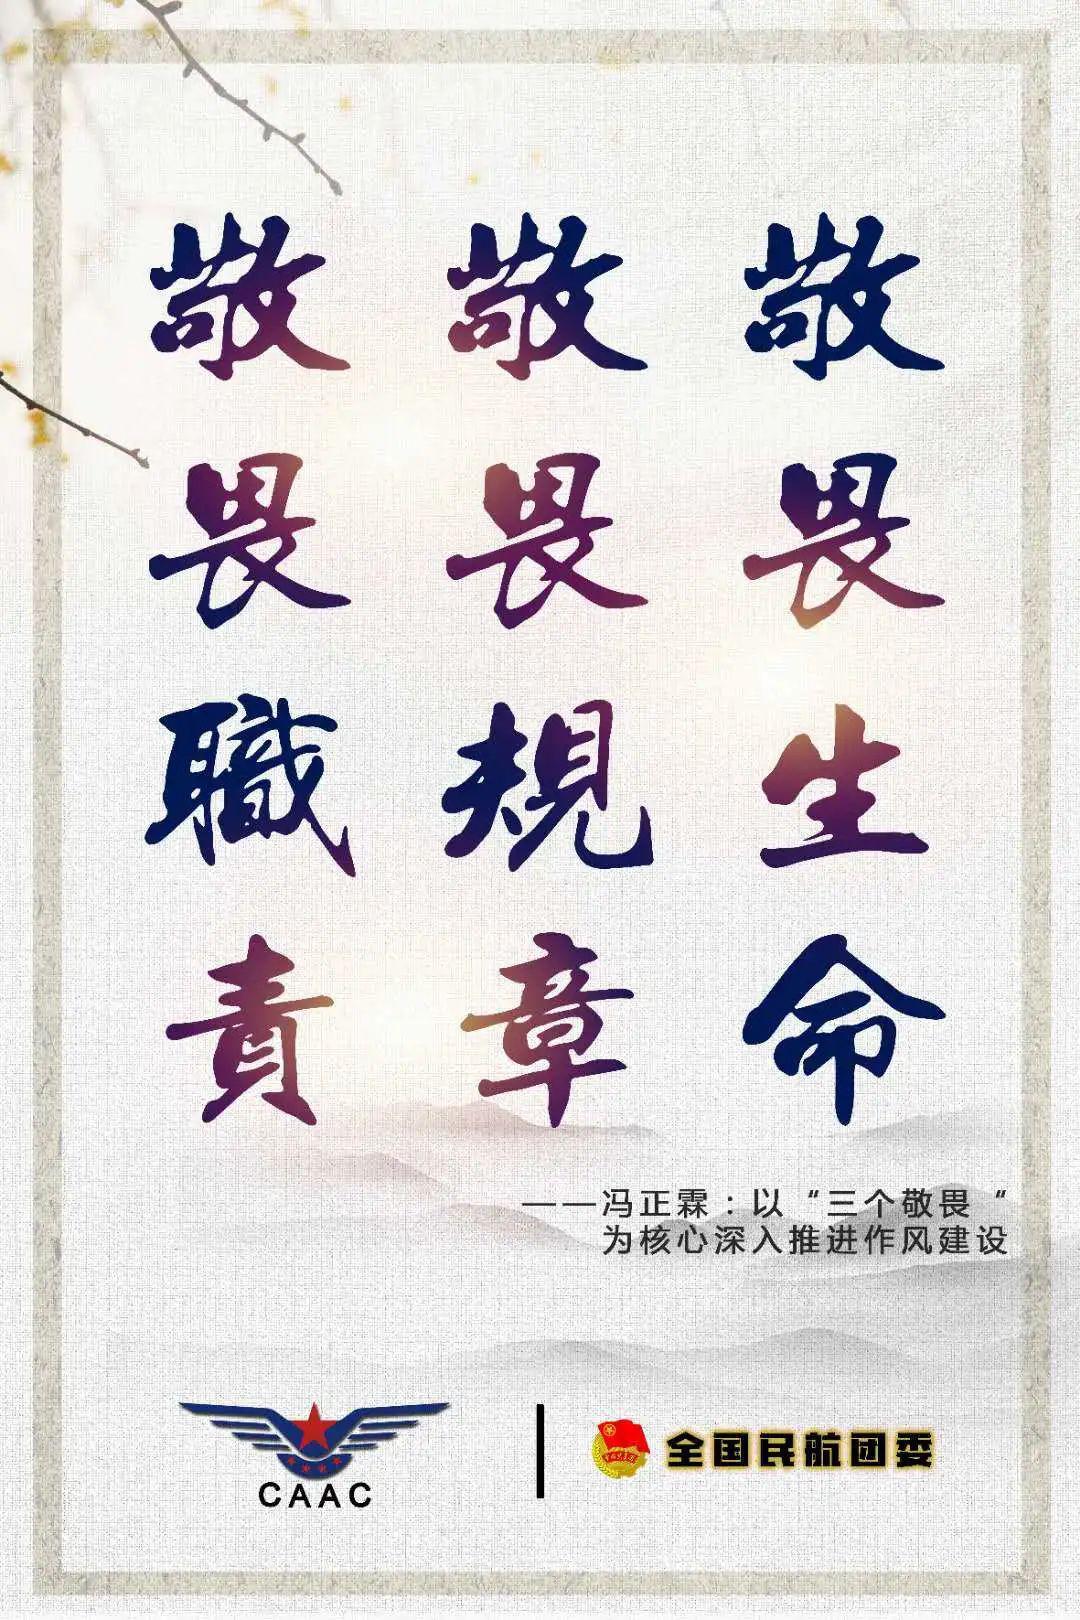 敬畏生命
敬畏規章
敬畏職責
——冯正霖：以“三个敬畏“
为核心深入推进作风建设
CAAC
全国民航团委